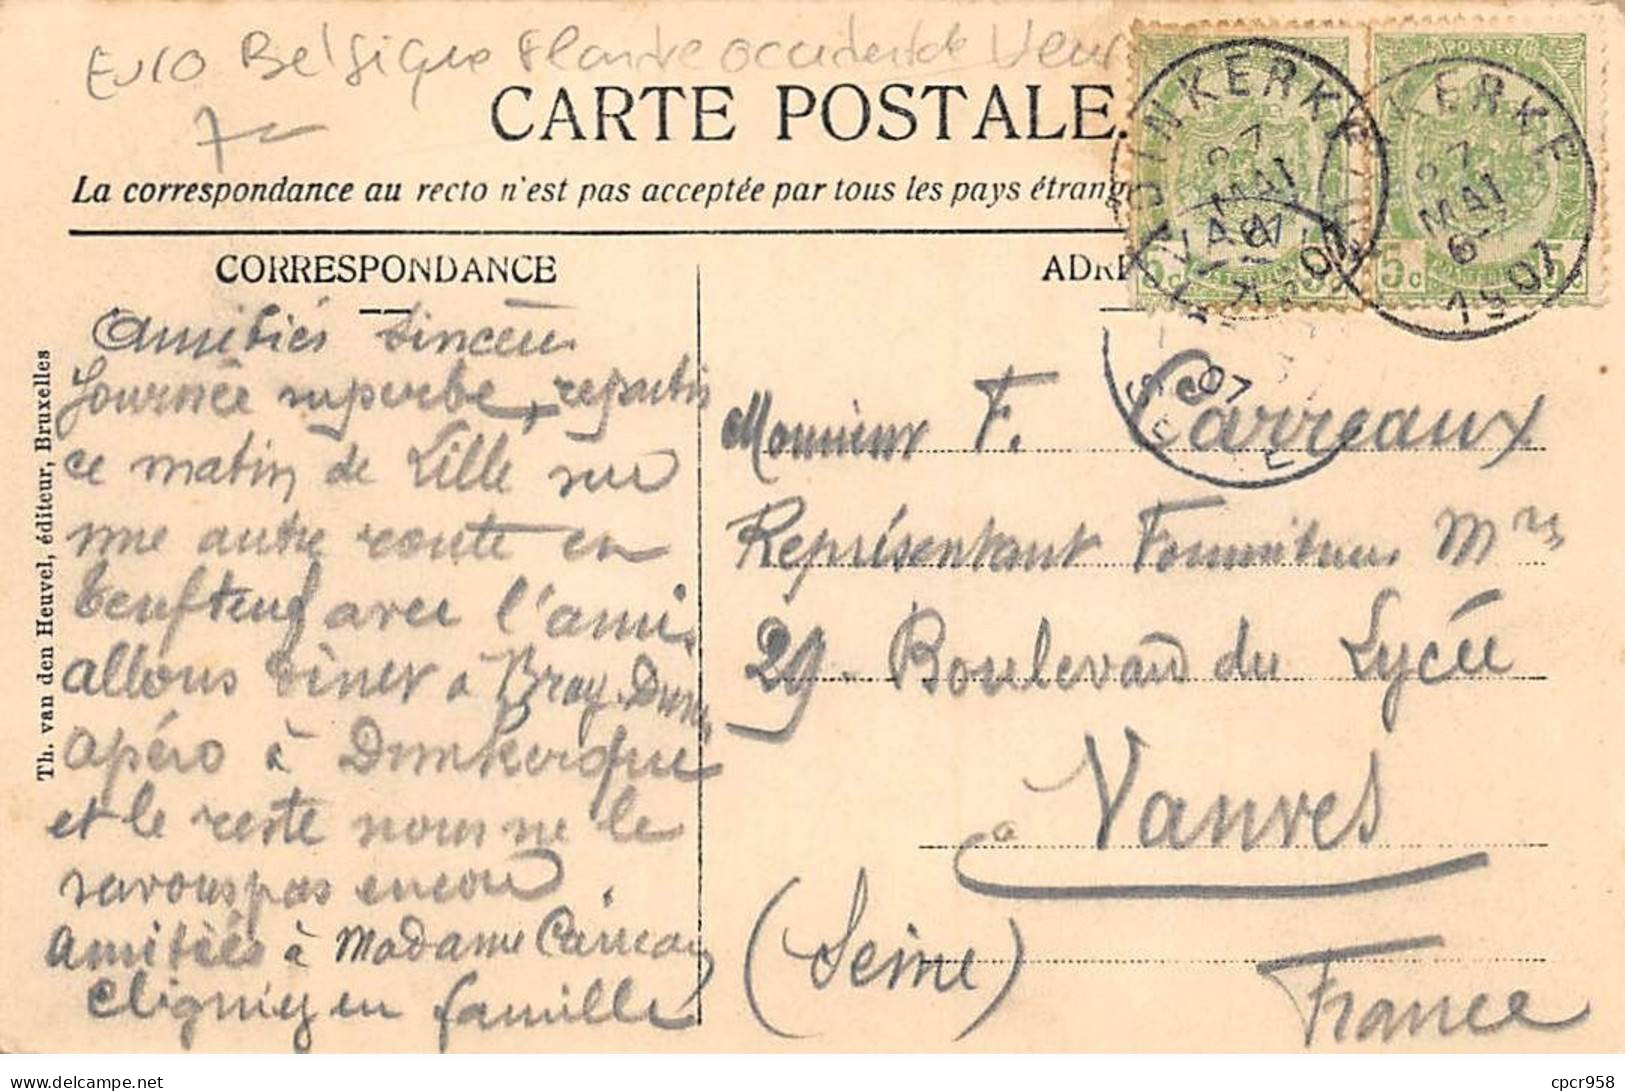 Euro Belgique Flandre occidentale Veur
7
CARTE POSTALE.
La correspondance au recto n'est pas acceptée par tous les pays étrang
CORRESPONDANCE
ADRE
POSTES
5c 5c 5c
ADINKERKE
27
MAI
1907
KERKE
27
MAI
6-
1907
07
Th. van den Heuvel, éditeur, Bruxelles
Amitiés sincères
Journée superbe, repartis
ce matin de Lille sur
une autre route en
teuf teuf avec l'ami.
allons diner à Bray-Dunes
apéro à Dunkerque
et le reste nous ne le
savons pas encore.
Amitiés à Madame Carreaux
en famille
Monsieur F. Carreaux
Représentant Fournitures Mres
29. Boulevard du Lycée
à Vanves
(Seine)
France
cpcr958